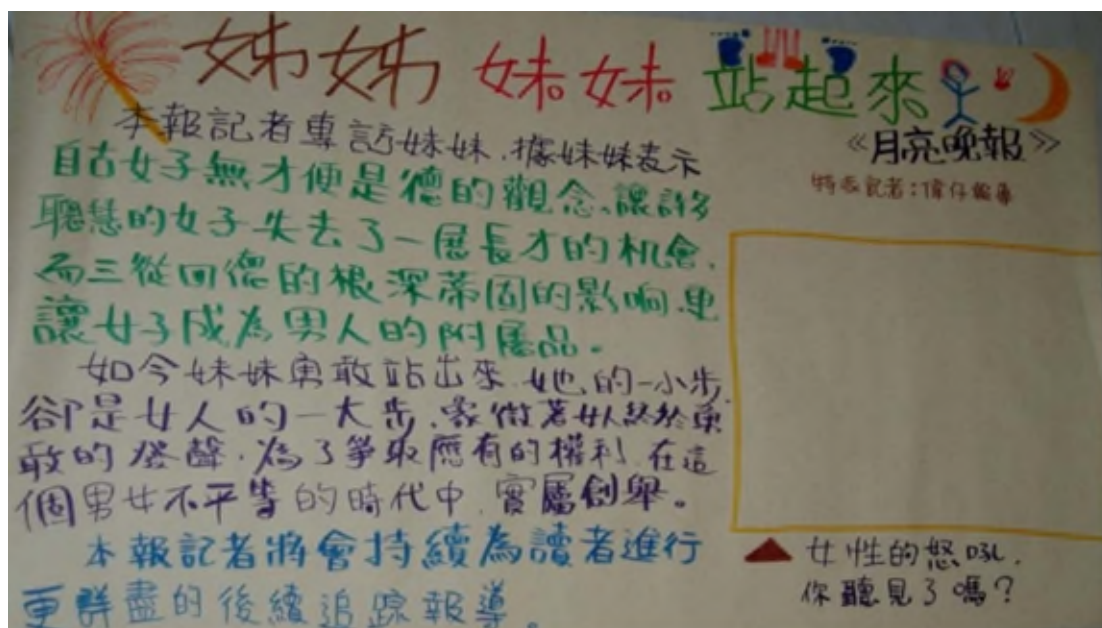 姊姊妹妹站起來
《月亮晚報》
特派記者:偉仔報導
本報記者專訪妹妹,據妹妹表示
自古女子無才便是德的觀念、讓許多
聰慧的女子失去了一展長才的机會,
而三從四德的根深蒂固的影响,更
讓女子成為男人的附屬品。
如今妹妹勇敢站出來,她的一小步,
卻是女人的一大步,象徵著女人終於勇
敢的發聲,為了爭取應有的權利,在這
個男女不平等的時代中,實屬創舉。
本報記者將會持續為讀者進行
更群盡的後續追踪報導。
▲女性的怒吼,
你聽見了嗎?